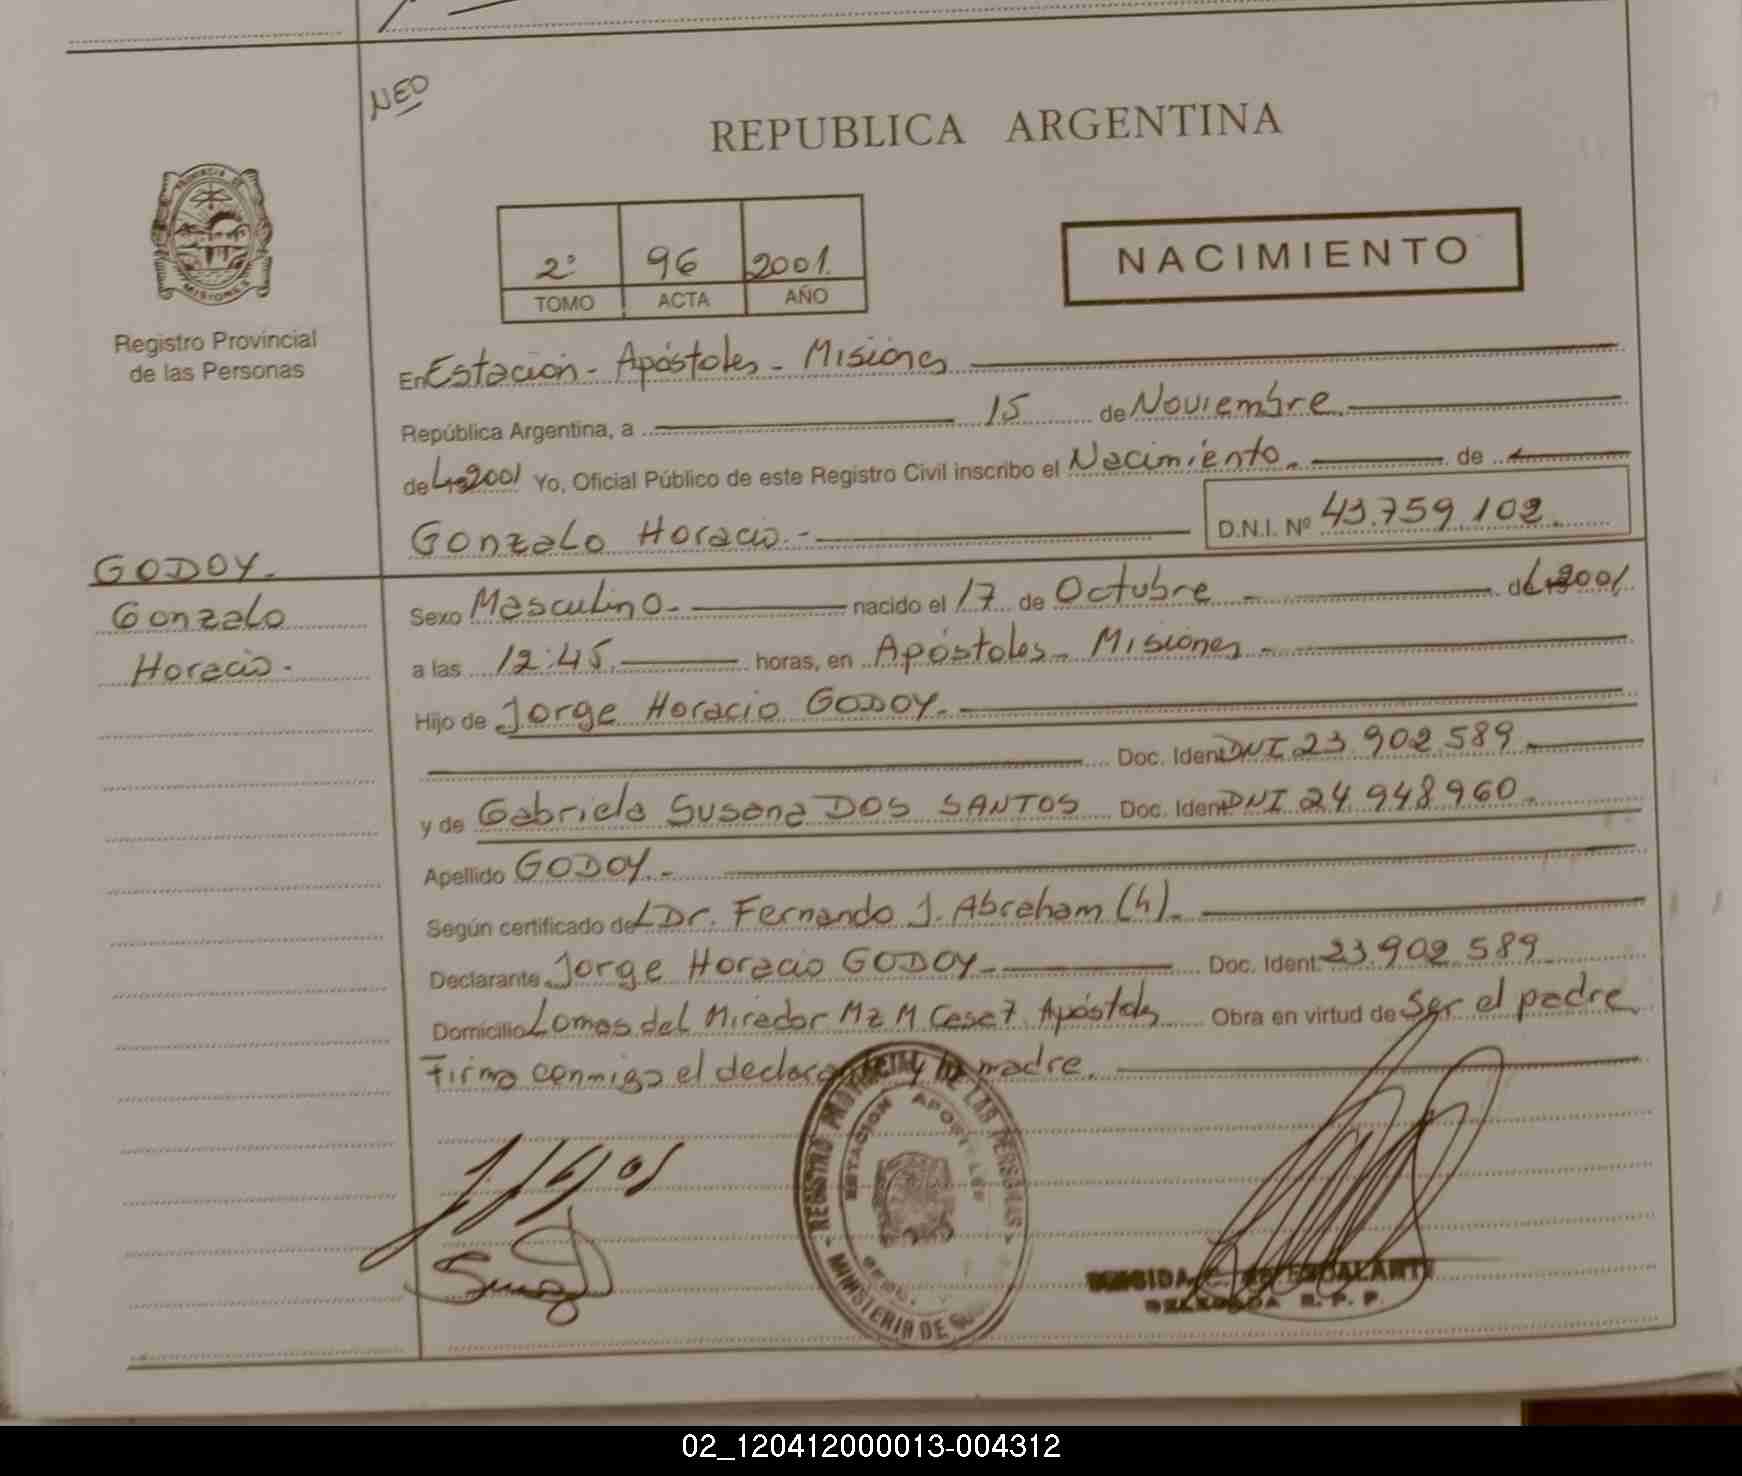 NEO
REPUBLICA ARGENTINA
2º 96 2001.
TOMO ACTA AÑO
NACIMIENTO
PROVINCIA DE
MISIONES
Registro Provincial
de las Personas
En Estación - Apóstoles - Misiones
República Argentina, a 15 de Noviembre.
de 2001 Yo, Oficial Público de este Registro Civil inscribo el Nacimiento. de
Gonzalo Horacio.- D.N.I. Nº 43.759.102.
GODOY.
Gonzalo
Horacio.
Sexo Masculino. nacido el 17 de Octubre - de 2001.
a las 12:45. horas, en Apóstoles - Misiones -
Hijo de Jorge Horacio GODOY.
Doc. Ident. DNI 23.902.589
y de Gabriela Susana DOS SANTOS Doc. Ident. DNI 24.948.960.
Apellido GODOY.
Según certificado del Dr. Fernando J. Abraham (h).
Declarante Jorge Horacio GODOY Doc. Ident. 23.902.589
Domicilio Lomas del Mirador Mz M Casa 7 Apóstoles Obra en virtud de Ser el padre
Firma conmigo el declarante y la madre.
REGISTRO PROVINCIAL DE LAS PERSONAS
ESTACION APOSTOLES
MINISTERIO DE
ESCALANTE
DELEGADA R. P. P.
02_120412000013-004312